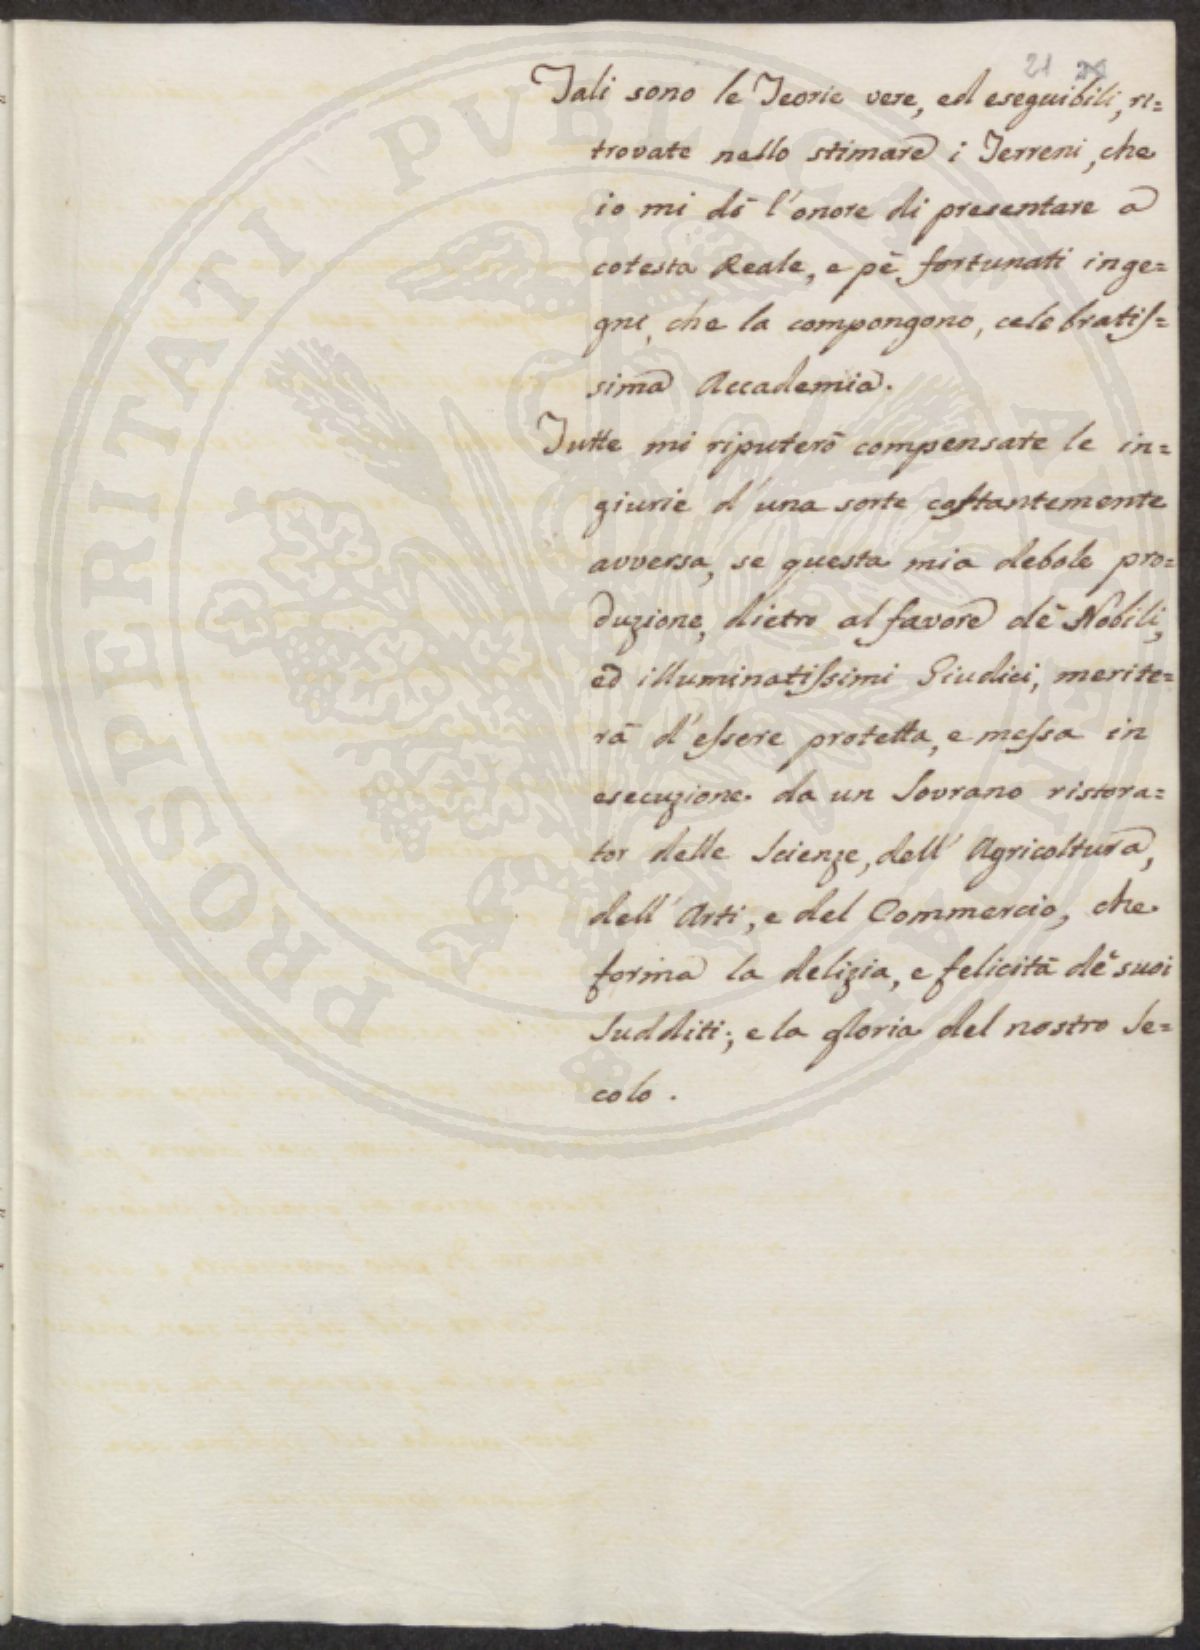 21
Tali sono le Teorie vere, ed eseguibili, ri=
trovate nello stimare i Terreni, che
io mi dò l'onore di presentare a
cotesta Reale, e pe' fortunati inge=
gni, che la compongono, celebratis=
sima Accademia.
Tutte mi riputerò compensate le in=
giurie d'una sorte costantemente
avversa, se questa mia debole pro=
duzione, dietro al favore de' Nobili,
ed illuminatissimi Giudici, merite=
rà d'essere protetta, e messa in
esecuzione da un Sovrano ristora=
tor delle Scienze, dell'Agricoltura,
dell'Arti, e del Commercio, che
forma la delizia, e felicità de' suoi
Sudditi; e la gloria del nostro Se=
colo.
PROSPERITATI PUBLICAE AUGENDAE